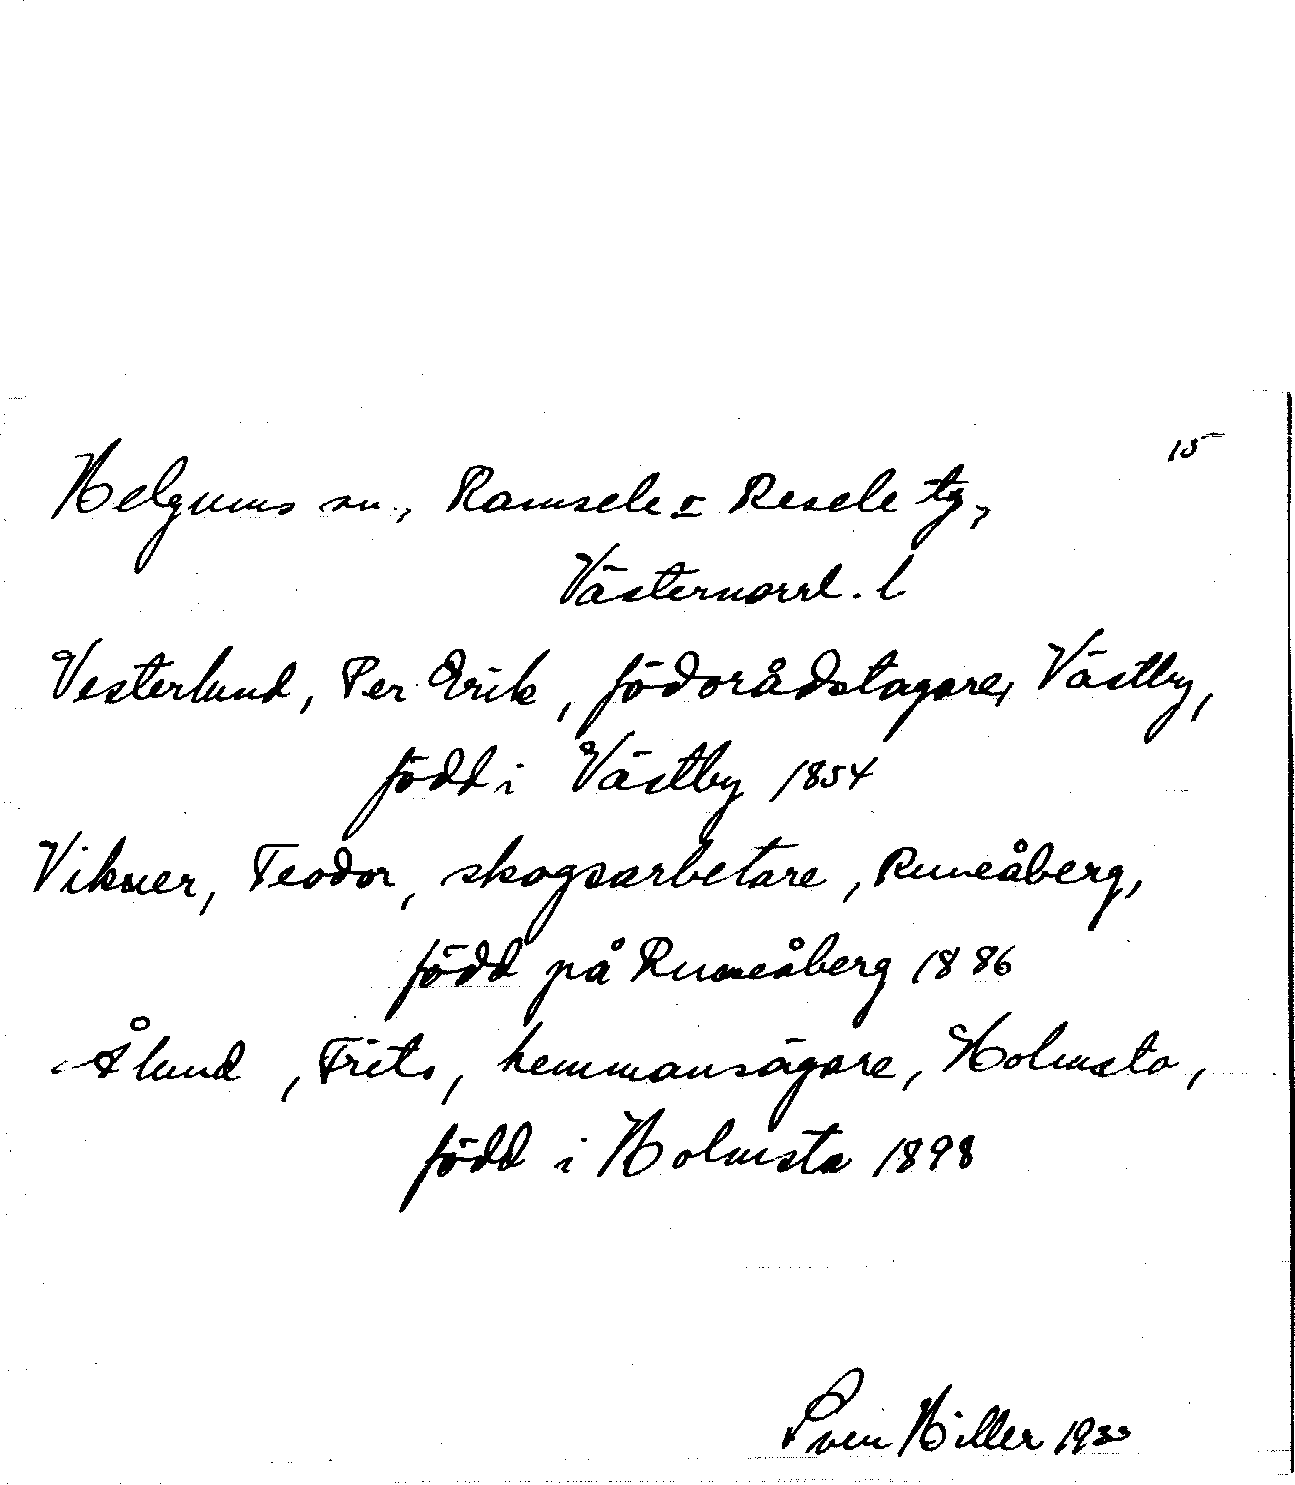 15
Helgums sn., Ramsele o Resele tg,
Västernorrl. l
Vesterlund, Per Erik, födorådstagare, Västby,
född i Västby 1854
Vikner, Teodor, skogsarbetare, Runeåberg,
född på Runeåberg 1886
Ålund, Frits, hemmansägare, Holmsta,
född i Holmsta 1898
Sven Hiller 1933